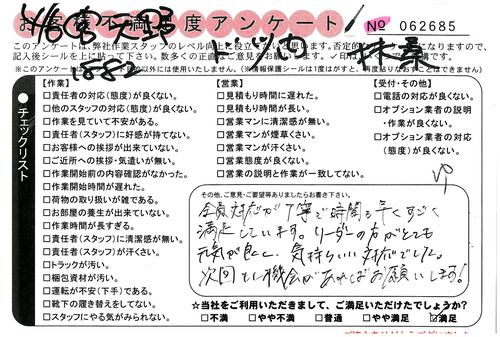 お客様不満足度アンケート
№ 062685
このアンケートは、弊社作業スタッフのレベル向上に役立てたいと思います。否定的な
記入後シールを上に貼って下さい。数多くの正直なご意見お願いします。
【作業】
□責任者の対応(態度)が良くない。
□他のスタッフの対応(態度)が良くない。
□作業を見ていて不安がある。
□責任者(スタッフ)に好感が持てない。
□お客様への挨拶が出来ていない。
□ご近所への挨拶・気遣いが無い。
□作業開始前の内容確認がなかった。
□作業開始時間が遅れた。
□荷物の取り扱いが雑である。
□お部屋の養生が出来ていない。
□作業時間が長すぎる。
□責任者(スタッフ)に清潔感が無い。
□責任者(スタッフ)が汗くさい。
□トラックが汚い。
□梱包資材が汚い。
□運転が不安(下手)である。
□靴下の履き替えをしてない。
□スタッフにやる気がみられない。
【営業】
□見積もり時間に遅れた。
□見積もり時間が長い。
□営業マンに清潔感が無い。
□営業マンが煙草くさい。
□営業マンが汗くさい。
□営業態度が良くない。
□営業の説明と作業が一致してない。
【受付・その他】
□電話の対応が良くない。
□オプション業者の説明
・作業が良くない。
□オプション業者の対応
(態度)が良くない。
チェックリスト
その他、ご意見・ご要望等ありましたらお書き下さい。
全員対応が丁寧で時間も早くすごく
満足しています。リーダーの方がとても
元気が良く、気持ちいい対応でした。
次回もし機会があればお願いします!
☆当社をご利用いただきまして、ご満足いただけたでしょうか?
□不満 □やや不満 □普通 □やや満足 ☑満足